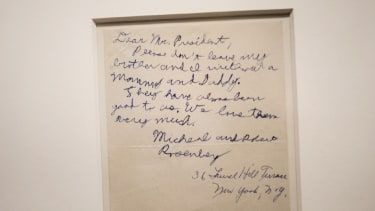 Dear Mr. President,
Please don't leave my
brother and I without a
Mommy and Daddy.
They have always been
good to us. We love them
very much.
Michael and Robert
Rosenberg
36 Laurel Hill Terrace
New York, N.Y.